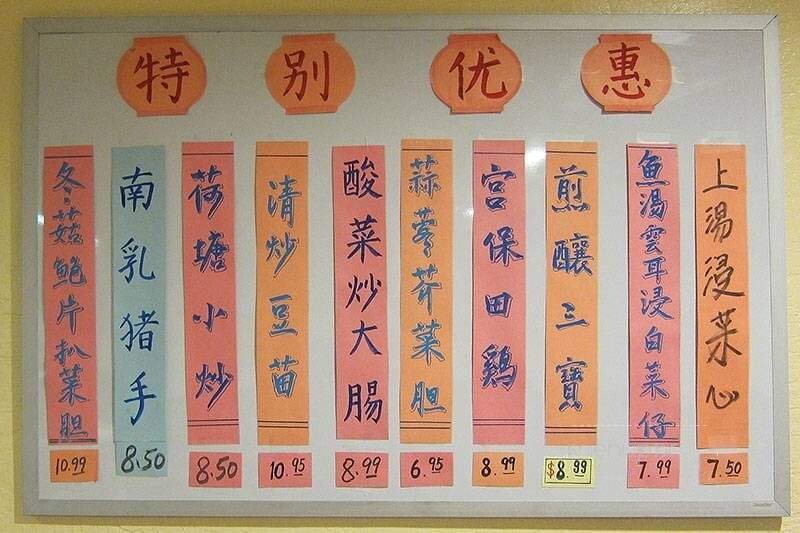 特别优惠
冬菇鮑片扒菜胆
10.99
南乳猪手
8.50
荷塘小炒
8.50
清炒豆苗
10.95
酸菜炒大腸
8.99
蒜蓉芥菜胆
6.95
宫保田鷄
8.99
煎釀三寶
$8.99
魚湯雲耳浸白菜仔
7.99
上湯浸菜心
7.50